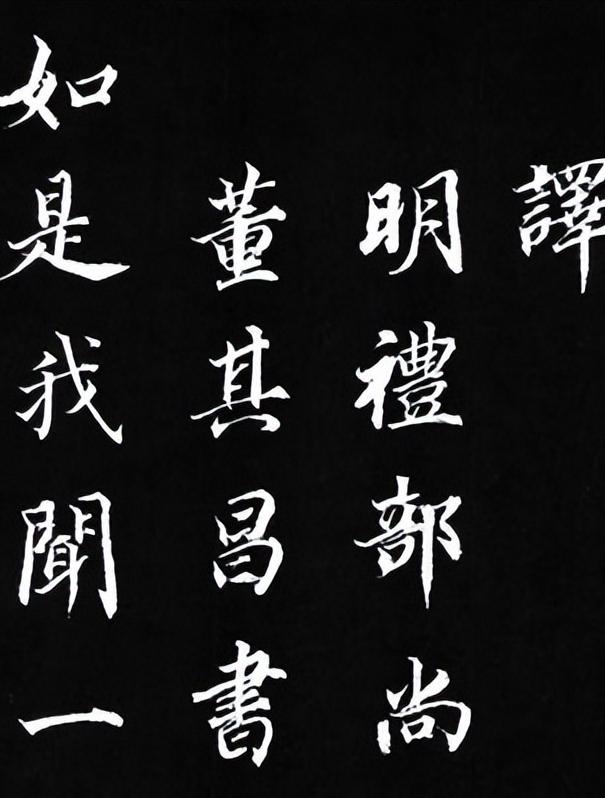 譯
明禮部尚
董其昌書
如是我聞一